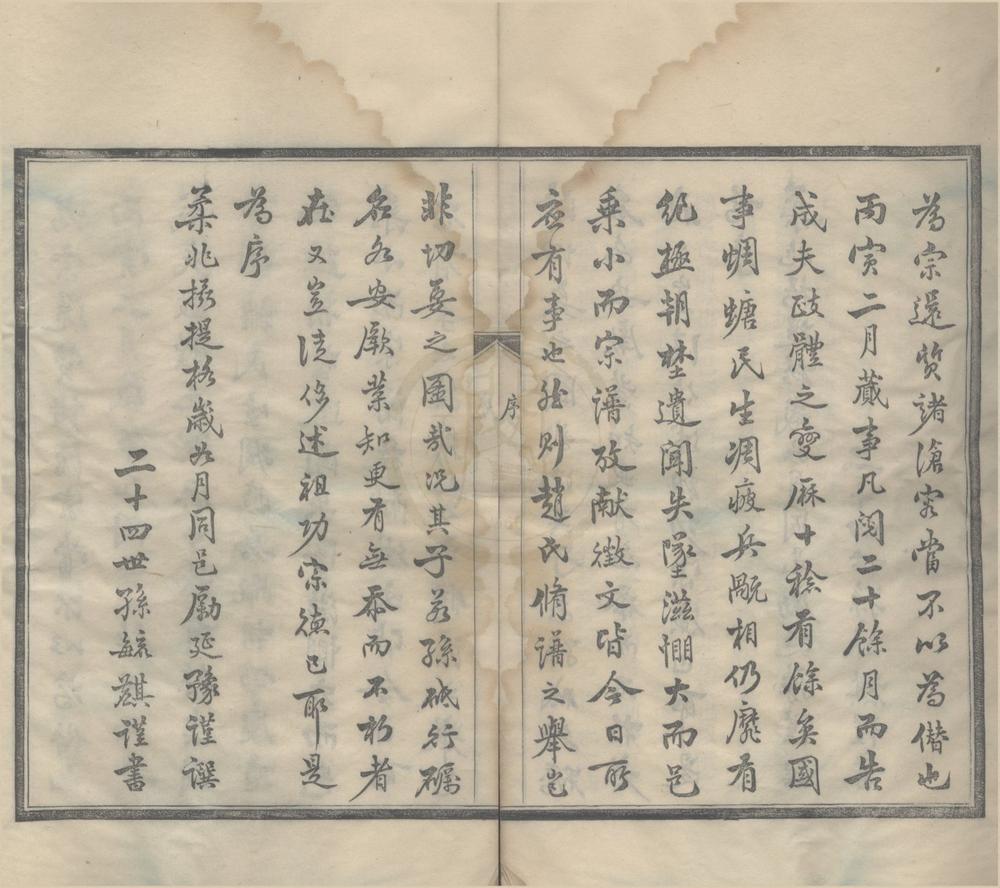 為宗還質諸滄客當不以為僭也
丙寅二月蕆事凡閱二十餘月而告
成夫政體之變厤十稔有餘矣國
事蜩螗民生凋疲兵戰相仍靡有
紀極朝埜遺聞失墜滋懼大而邑
乗小而宗譜攷献徵文皆今日所
应有事也然則趙氏脩譜之舉豈
序
非切要之圖哉況其子若孫砥行礪
名各安厥業知更有無忝而不朽者
在又豈徒侈述祖功宗德已耶是
為序
柔兆攝提格歲如月同邑勵延豫謹譔
二十四世孫毓麒謹書